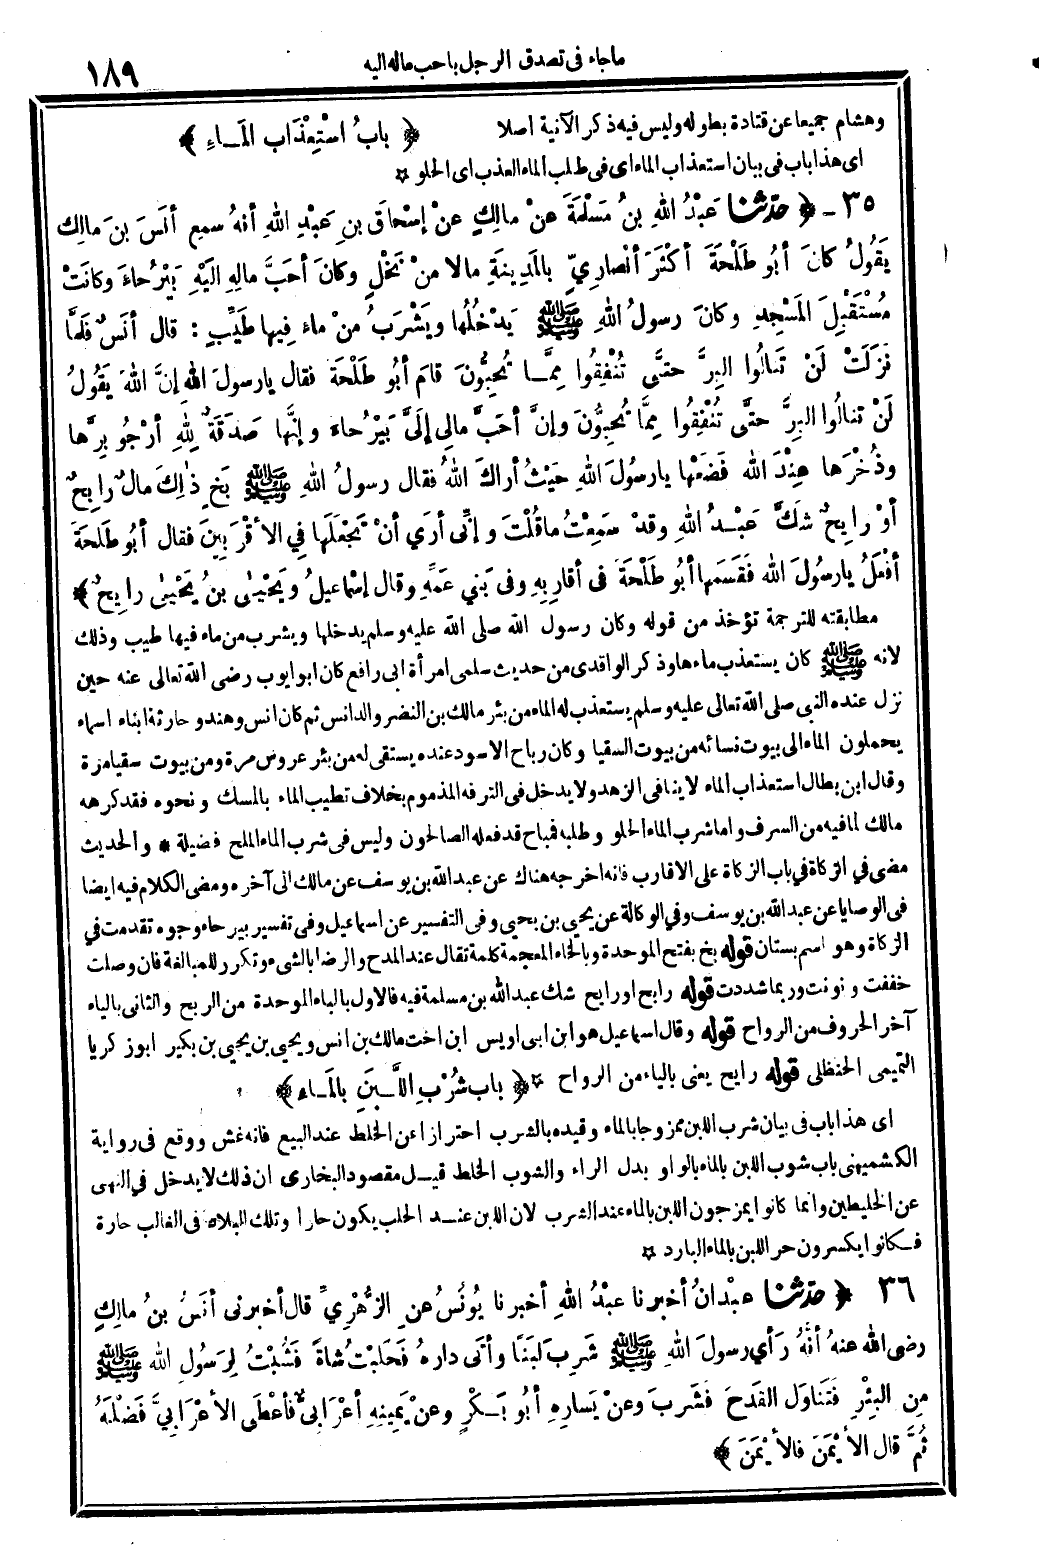 ماجاء فى تصدق الرجل باحب ماله اليه
١٨٩
وهشام جميعا عن قتادة بطوله وليس فيه ذكر الآنية اصلا ﴿ بابُ اسْتِعْذَابِ المَــاءِ ﴾
اى هذا باب فى بيان استعذاب الماء اى فى طلب الماء العذب اى الحلو ☆
٣٥ - ﴿ حدثنا عَبْدُ اللهِ بنُ مَسْلَمَةَ عنْ مالِكٍ عنْ إسْحاقَ بنِ عَبْدِ اللهِ أنهُ سمِعَ أنَسَ بنَ مالِكٍ
يَقُولُ كانَ أبُو طَلْحَةَ أكْثَرَ أنْصارِيٍّ بالمَدِينَةِ مالا منْ نَخْلٍ وكانَ أحَبَّ مالِهِ الَيْهِ بَيْرُحاءَ وكانَتْ
مُسْتَقْبِلَ المَسْجِدِ وكانَ رسولُ اللهِ ﷺ يَدْخُلُها ويَشْرَبُ منْ ماءٍ فِيها طَيِّبٍ : قال أنَسٌ فَلَمَّا
نَزَلَتْ لَنْ تَنالُوا البِرَّ حتَّى تُنْفِقُوا مِمَّــا تُحِبُّونَ قامَ أبُو طَلْحَةَ فقال يارسولَ اللهِ إنَّ اللهَ يَقُولُ
لَنْ تنالُوا البِرَّ حتَّى تُنْفِقُوا مِمَّا تُحِبُّونَ وإنَّ أحَبَّ مالِي إلَىَّ بَيْرُحاءَ وإنَّها صَدَقَةٌ لِلهِ أرْجُو بِرَّها
وذُخْرَها عِنْدَ اللهِ فَضَعْها يارسُولَ اللهِ حَيْثُ أراكَ اللهُ فقال رسولُ اللهِ ﷺ بَخٍ ذٰلِكَ مالٌ رابِحٌ
أوْ رايِحٌ شكَّ عَبْــدُ اللهِ وقدْ سَمِعْتُ ماقُلْتَ وإنِّى أرَي أنْ تَجْعَلَها فِي الأقْرَبِينَ فقال أبُو طَلْحَةَ
أفْعَلُ يارسُولَ اللهِ فَقَسَمَها أبُو طَلْحَةَ فى أقارِبِهِ وفى بَنِي عَمِّهِ وقال إسْماعِيلُ ويَحْيىٰ بنُ يَحْيىٰ رايِحٌ ﴾
مطابقته للترجمة تؤخذ من قوله وكان رسول الله صلى الله عليه وسلم يدخلها ويشرب من ماء فيها طيب وذلك
لانه ﷺ كان يستعذب ماءها وذكر الواقدى من حديث سلمى امرأة ابى رافع كان ابو ايوب رضى الله تعالى عنه حين
نزل عنده النبى صلى الله تعالى عليه وسلم يستعذب له الماء من بئر مالك بن النضر والد انس ثم كان انس وهند وحارثة ابناء اسماء
يحملون الماء الى بيوت نسائه من بيوت السقيا وكان رباح الاسود عنده يستقى له من بئر عروس مرة ومن بيوت سقيا مرة
وقال ابن بطال استعذاب الماء لا ينافى الزهد ولا يدخل فى الترفه المذموم بخلاف تطيب الماء بالمسك ونحوه فقد كرهه
مالك لما فيه من السرف واما شرب الماء الحلو وطلبه فمباح قد فعله الصالحون وليس فى شرب الماء الملح فضيلة * والحديث
مضى في الزكاة في باب الزكاة على الاقارب فانه اخرجه هناك عن عبدالله بن يوسف عن مالك الى آخره ومضى الكلام فيه ايضا
فى الوصايا عن عبدالله بن يوسف وفي الوكالة عن يحيى بن يحيى وفى التفسير عن اسماعيل وفى تفسير بيرحاء وجوه تقدمت في
الزكاة وهو اسم بستان قوله بخ بفتح الموحدة وبالخاء المعجمة كلمة تقال عند المدح والرضا بالشىء وتكرر للمبالغة فان وصلت
خففت ونونت وربما شددت قوله رابح او رايح شك عبدالله بن مسلمة فيه فالاول بالباء الموحدة من الربح والثانى بالياء
آخر الحروف من الرواح قوله وقال اسماعيل هو ابن ابى اويس ابن اخت مالك بن انس ويحيى بن يحيى بن بكير ابو زكريا
التميمى الحنظلى قوله رايح يعنى بالياء من الرواح ☆ ﴿ بابُ شُرْبِ اللَّــبَنِ بالمَــاءِ ﴾
اى هذا باب فى بيان شرب اللبن ممزوجا بالماء وقيده بالشرب احترازا عن الخلط عند البيع فانه غش ووقع فى رواية
الكشميهنى باب شوب اللبن بالماء بالواو بدل الراء والشوب الخلط قيــل مقصود البخارى ان ذلك لا يدخل في النهى
عن الخليطين وانما كانوا يمزجون اللبن بالماء عند الشرب لان اللبن عنــد الحلب يكون حارا وتلك البلاد فى الغالب حارة
فــكانوا يكسرون حر اللبن بالماء البارد ☆
٣٦ ﴿ حدثنا عبْدانُ أخبرنا عبْدُ اللهِ أخبرنا يُونُسُ عنِ الزُّهْرِيِّ قال أخبرنى أنَسُ بنُ مالِكٍ
رضى الله عنهُ أنَّهُ رَأي رسولَ اللهِ ﷺ شَرِبَ لَبَنًا وأتَى دارهُ فَحَلَبْتُ شاةً فَشُبْتُ لِرَسُولِ اللهِ ﷺ
مِنِ البِئْرِ فَتَناوَلَ القَدَحَ فَشَرِبَ وعنْ يَسارِهِ أبُو بَــكْرٍ وعنْ يَمِينِهِ أعْرَابِىٌّ فأعْطَى الأعْرَابِيَّ فَضْلَهُ
ثُمَّ قال الأيْمَنَ فالأيْمَنَ ﴾